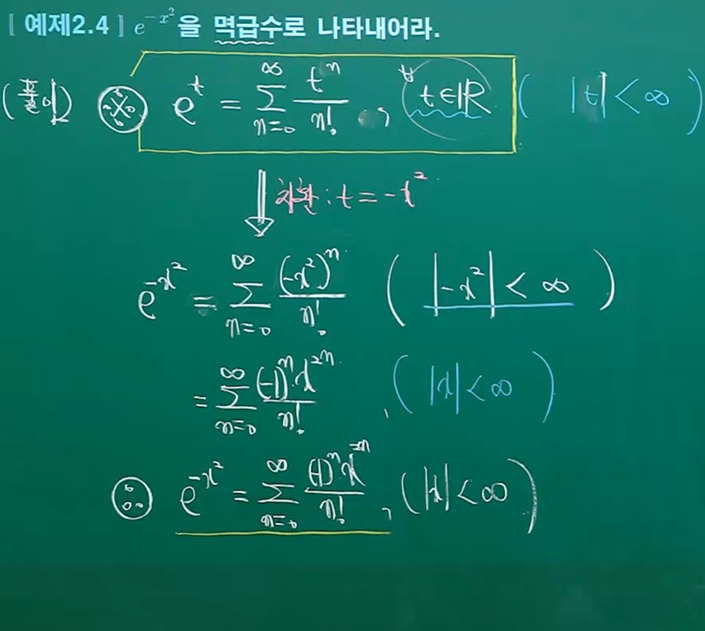 [예제2.4] e^{-x^2}을 멱급수로 나타내어라.
(풀이) ※ e^t = \sum_{n=0}^{∞} \frac{t^n}{n!}, ∀t∈ℝ (|t| < ∞)
⇓ 치환 : t = -x^2
e^{-x^2} = \sum_{n=0}^{∞} \frac{(-x^2)^n}{n!} (|-x^2| < ∞)
= \sum_{n=0}^{∞} \frac{(-1)^n x^{2n}}{n!}, (|x| < ∞)
∴ e^{-x^2} = \sum_{n=0}^{∞} \frac{(-1)^n x^{2n}}{n!}, (|x| < ∞)